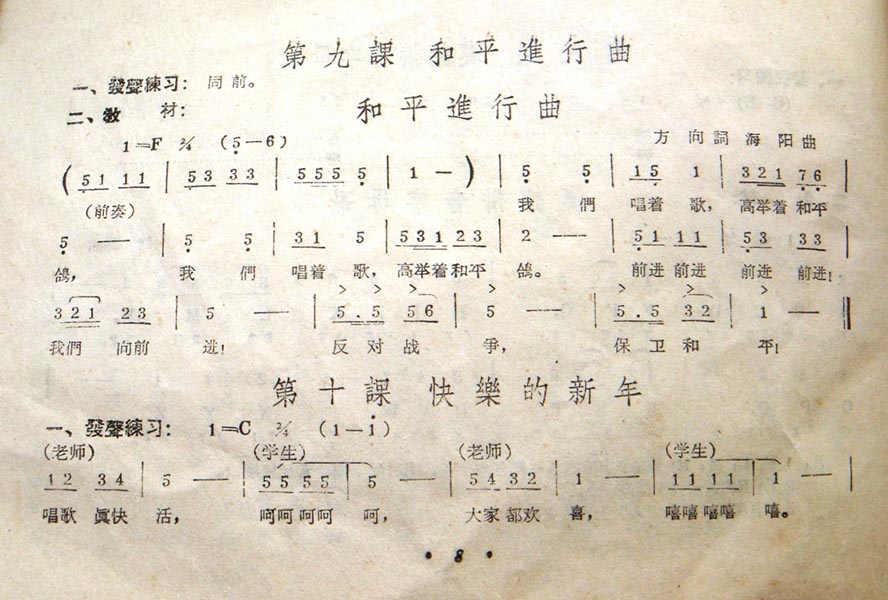 第九課 和平進行曲
一、發聲練习：同前。
二、教 材： 和平進行曲
1=F 2/4 (5̣—6) 方向詞 海阳曲
( 5̣1 11 | 5̣3 33 | 5555 5̣ | 1 — ) | 5̣ 5̣ | 15̣ 1 | 321 7̣6̣ |
(前奏) 我 們 唱着 歌， 高举着 和平
5̣ — | 5̣ 5̣ | 31 5 | 531 23 | 2 — | 5̣1 11 | 5̣3 33 |
鴿， 我 們 唱着 歌，高举着和平 鴿。 前进 前进 前进 前进！
321 23 | 5 — | 5.5 56 | 5 — | 5.5 32 | 1 — ‖
我們 向前 进！ 反对战 争， 保卫和 平！
第十課 快樂的新年
一、發聲練习： 1=C 2/4 (1—i)
(老师) (学生) (老师) (学生)
12 34 | 5 — | 55 55 | 5 — | 54 32 | 1 — | 11 11 | 1 — |
唱歌 眞快 活， 呵呵 呵呵 呵， 大家 都欢 喜， 嘻嘻 嘻嘻 嘻。
• 8 •